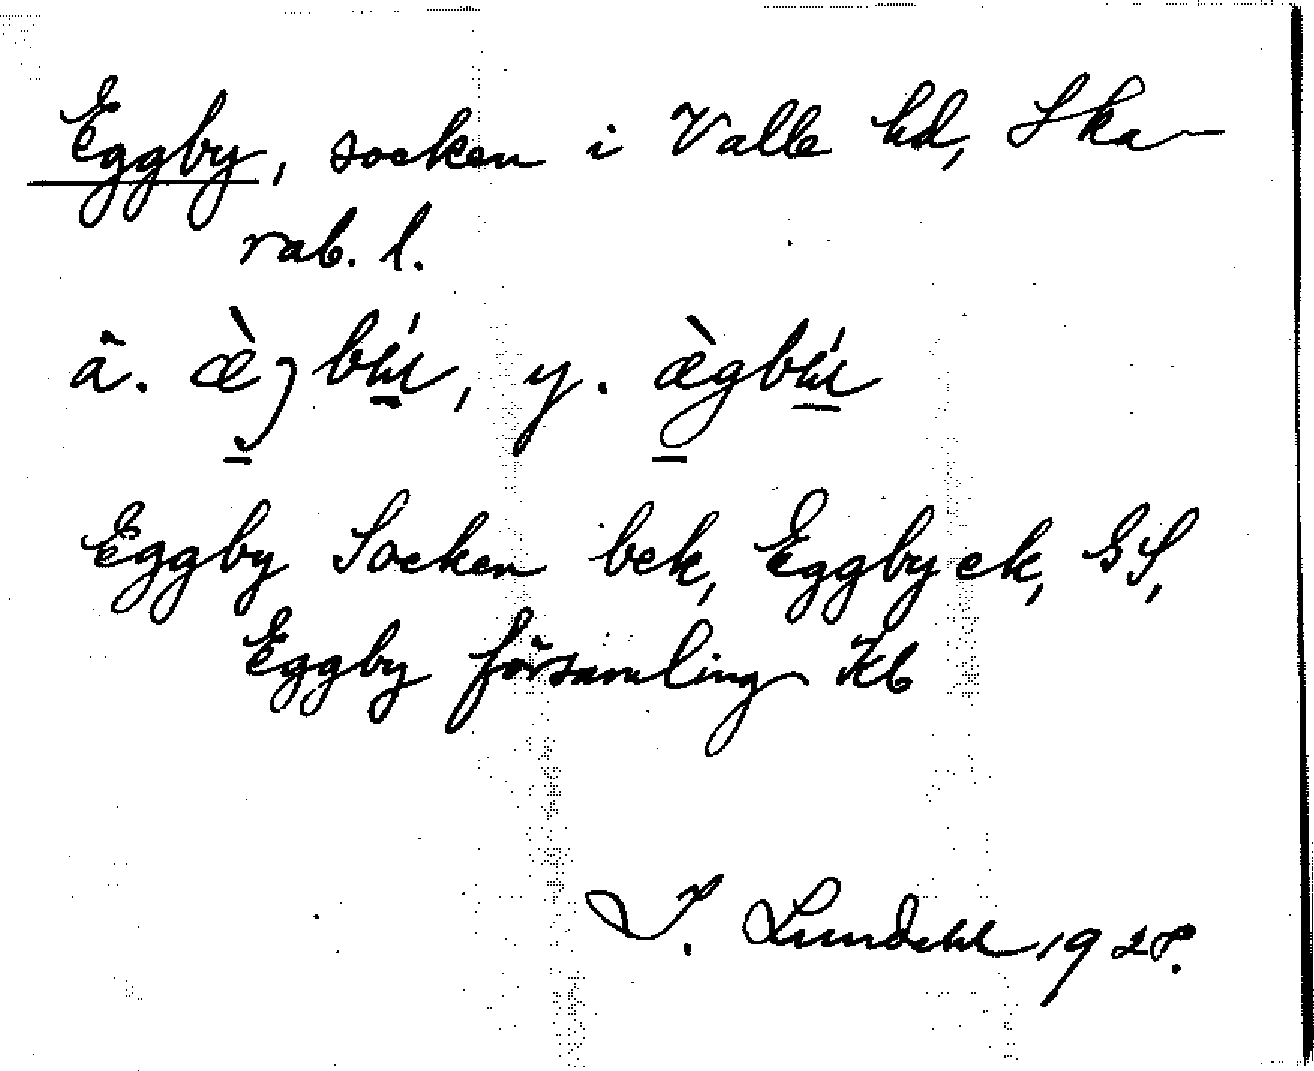 Eggby, socken i Valle hd, Ska-
rab. l.
ä. , y.
Eggby Socken bek, Eggby ek, GS,
Eggby församling Kb
I. Lundahl 1928.